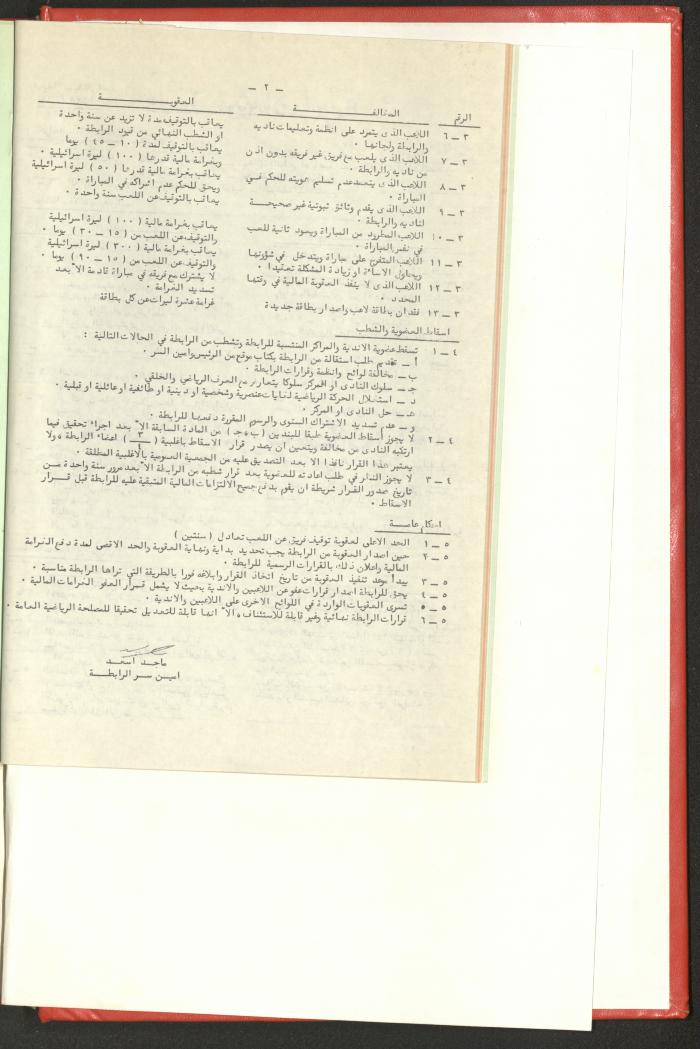 — ٢ —
الرقم المخالفـــــــة العقوبـــــــة
٣ — ٦ اللاعب الذي يتمرد على انظمة وتعليمات ناديه يعاقب بالتوقيف مدة لا تزيد عن سنة واحدة
والرابطة ولجانها ٠ او الشطب النهائي من قيود الرابطة ٠
٣ — ٧ اللاعب الذي يلعب مع فريق غير فريقه بدون اذن يعاقب بالتوقيف لمدة ( ١٠ — ٤٥ ) يوما
من ناديه والرابطة ٠ وبغرامة مالية قدرها ( ١٠٠ ) ليرة اسرائيلية ٠
٣ — ٨ اللاعب الذي يتعمد عدم تسليم هويته للحكم فــي يعاقب بغرامة مالية قدرها ( ٥٠ ) ليرة اسرائيلية
المباراة ٠ ويحق للحكم عدم اشراكه في المباراة ٠
٣ — ٩ اللاعب الذي يقدم وثائق ثبوتية غير صحيحـــة يعاقب بالتوقيف عن اللعب سنة واحدة ٠
لناديه والرابطة ٠
٣ — ١٠ اللاعب المطرود من المباراة ويعود ثانية للعب يعاقب بغرامة مالية ( ١٠٠ ) ليرة اسرائيلية
في نفس المباراة ٠ والتوقيف عن اللعب من ( ١٥ — ٣٠ ) يوما ٠
٣ — ١١ اللاعب المتفرج على مباراة ويتدخل في شؤونها يعاقب بغرامة مالية ( ٣٠٠ ) ليرة اسرائيلية
ويحاول الاساءة او زيادة المشكلة تعقيدا ٠ والتوقيف عن اللعب من ( ١٥ — ٩٠ ) يوما ٠
٣ — ١٢ اللاعب الذي لا ينفذ العقوبة المالية في وقتها لا يشترك مع فريقه في مباراة قادمة الا بعد
المحدد ٠ تسديد الغرامة ٠
٣ — ١٣ فقدان بطاقة لاعب واصدار بطاقة جديدة غرامة عشرة ليرات عن كل بطاقة
اسقاط العضوية والشطب
٤ — ١ تسقط عضوية الاندية والمراكز المنتسبة للرابطة وتشطب من الرابطة في الحالات التالية :
أ — تقديم طلب استقالة من الرابطة بكتاب موقع من الرئيس وامين السر ٠
ب — مخالفة لوائح وانظمة وقرارات الرابطة ٠
جـ — سلوك النادي او المركز سلوكا يتعارض مع العرف الرياضي والخلقي ٠
د — استغلال الحركة الرياضية لغايات عنصرية وشخصية او دينية او طائفية او عائلية او قبلية ٠
هـ — حل النادي او المركز ٠
و — عدم تسديد الاشتراك السنوي والرسوم المقررة دفعها للرابطة ٠
٤ — ٢ لا يجوز اسقاط العضوية طبقا للبندين ( ب ، جـ ) من المادة السابقة الا بعد اجراء تحقيق فيما
ارتكبه النادي من مخالفة ويتعين ان يصدر قرار الاسقاط باغلبية اعضاء الرابطة ، ولا
يعتبر هذا القرار نافذا الا بعد التصديق عليه من الجمعية العمومية بالاغلبية المطلقة ٠
٤ — ٣ لا يجوز النظر في طلب اعادته للعضوية بعد قرار شطبه من الرابطة الا بعد مرور سنة واحدة مــن
تاريخ صدور القرار شريطة ان يقوم بدفع جميع الالتزامات المالية المتبقية عليه للرابطة قبل قـــرار
الاسقاط ٠
احكام عامـــة
٥ — ١ الحد الاعلى لعقوبة توقيف فريق عن اللعب تعادل ( سنتين )
٥ — ٢ حين اصدار العقوبة من الرابطة يجب تحديد بداية ونهاية العقوبة والحد الاقصى لمدة دفع الغرامة
المالية واعلان ذلك بالقرارات الرسمية للرابطة ٠
٥ — ٣ يبدأ موعد تنفيذ العقوبة من تاريخ اتخاذ القرار وابلاغه فورا بالطريقة التي تراها الرابطة مناسبة ٠
٥ — ٤ يحق للرابطة اصدار قرارات عفو عن اللاعبين والاندية بحيث لا يشمل قــرار العفو الغرامات المالية ٠
٥ — ٥ تسرى العقوبات الواردة في اللوائح الاخرى على اللاعبين والاندية ٠
٥ — ٦ قرارات الرابطة نهائية وغير قابلة للاستئناف ، الا انها قابلة للتعديل تحقيقا للمصلحة الرياضية العامة ٠
ماجـد اسعـد
اميـن ســر الرابطــة